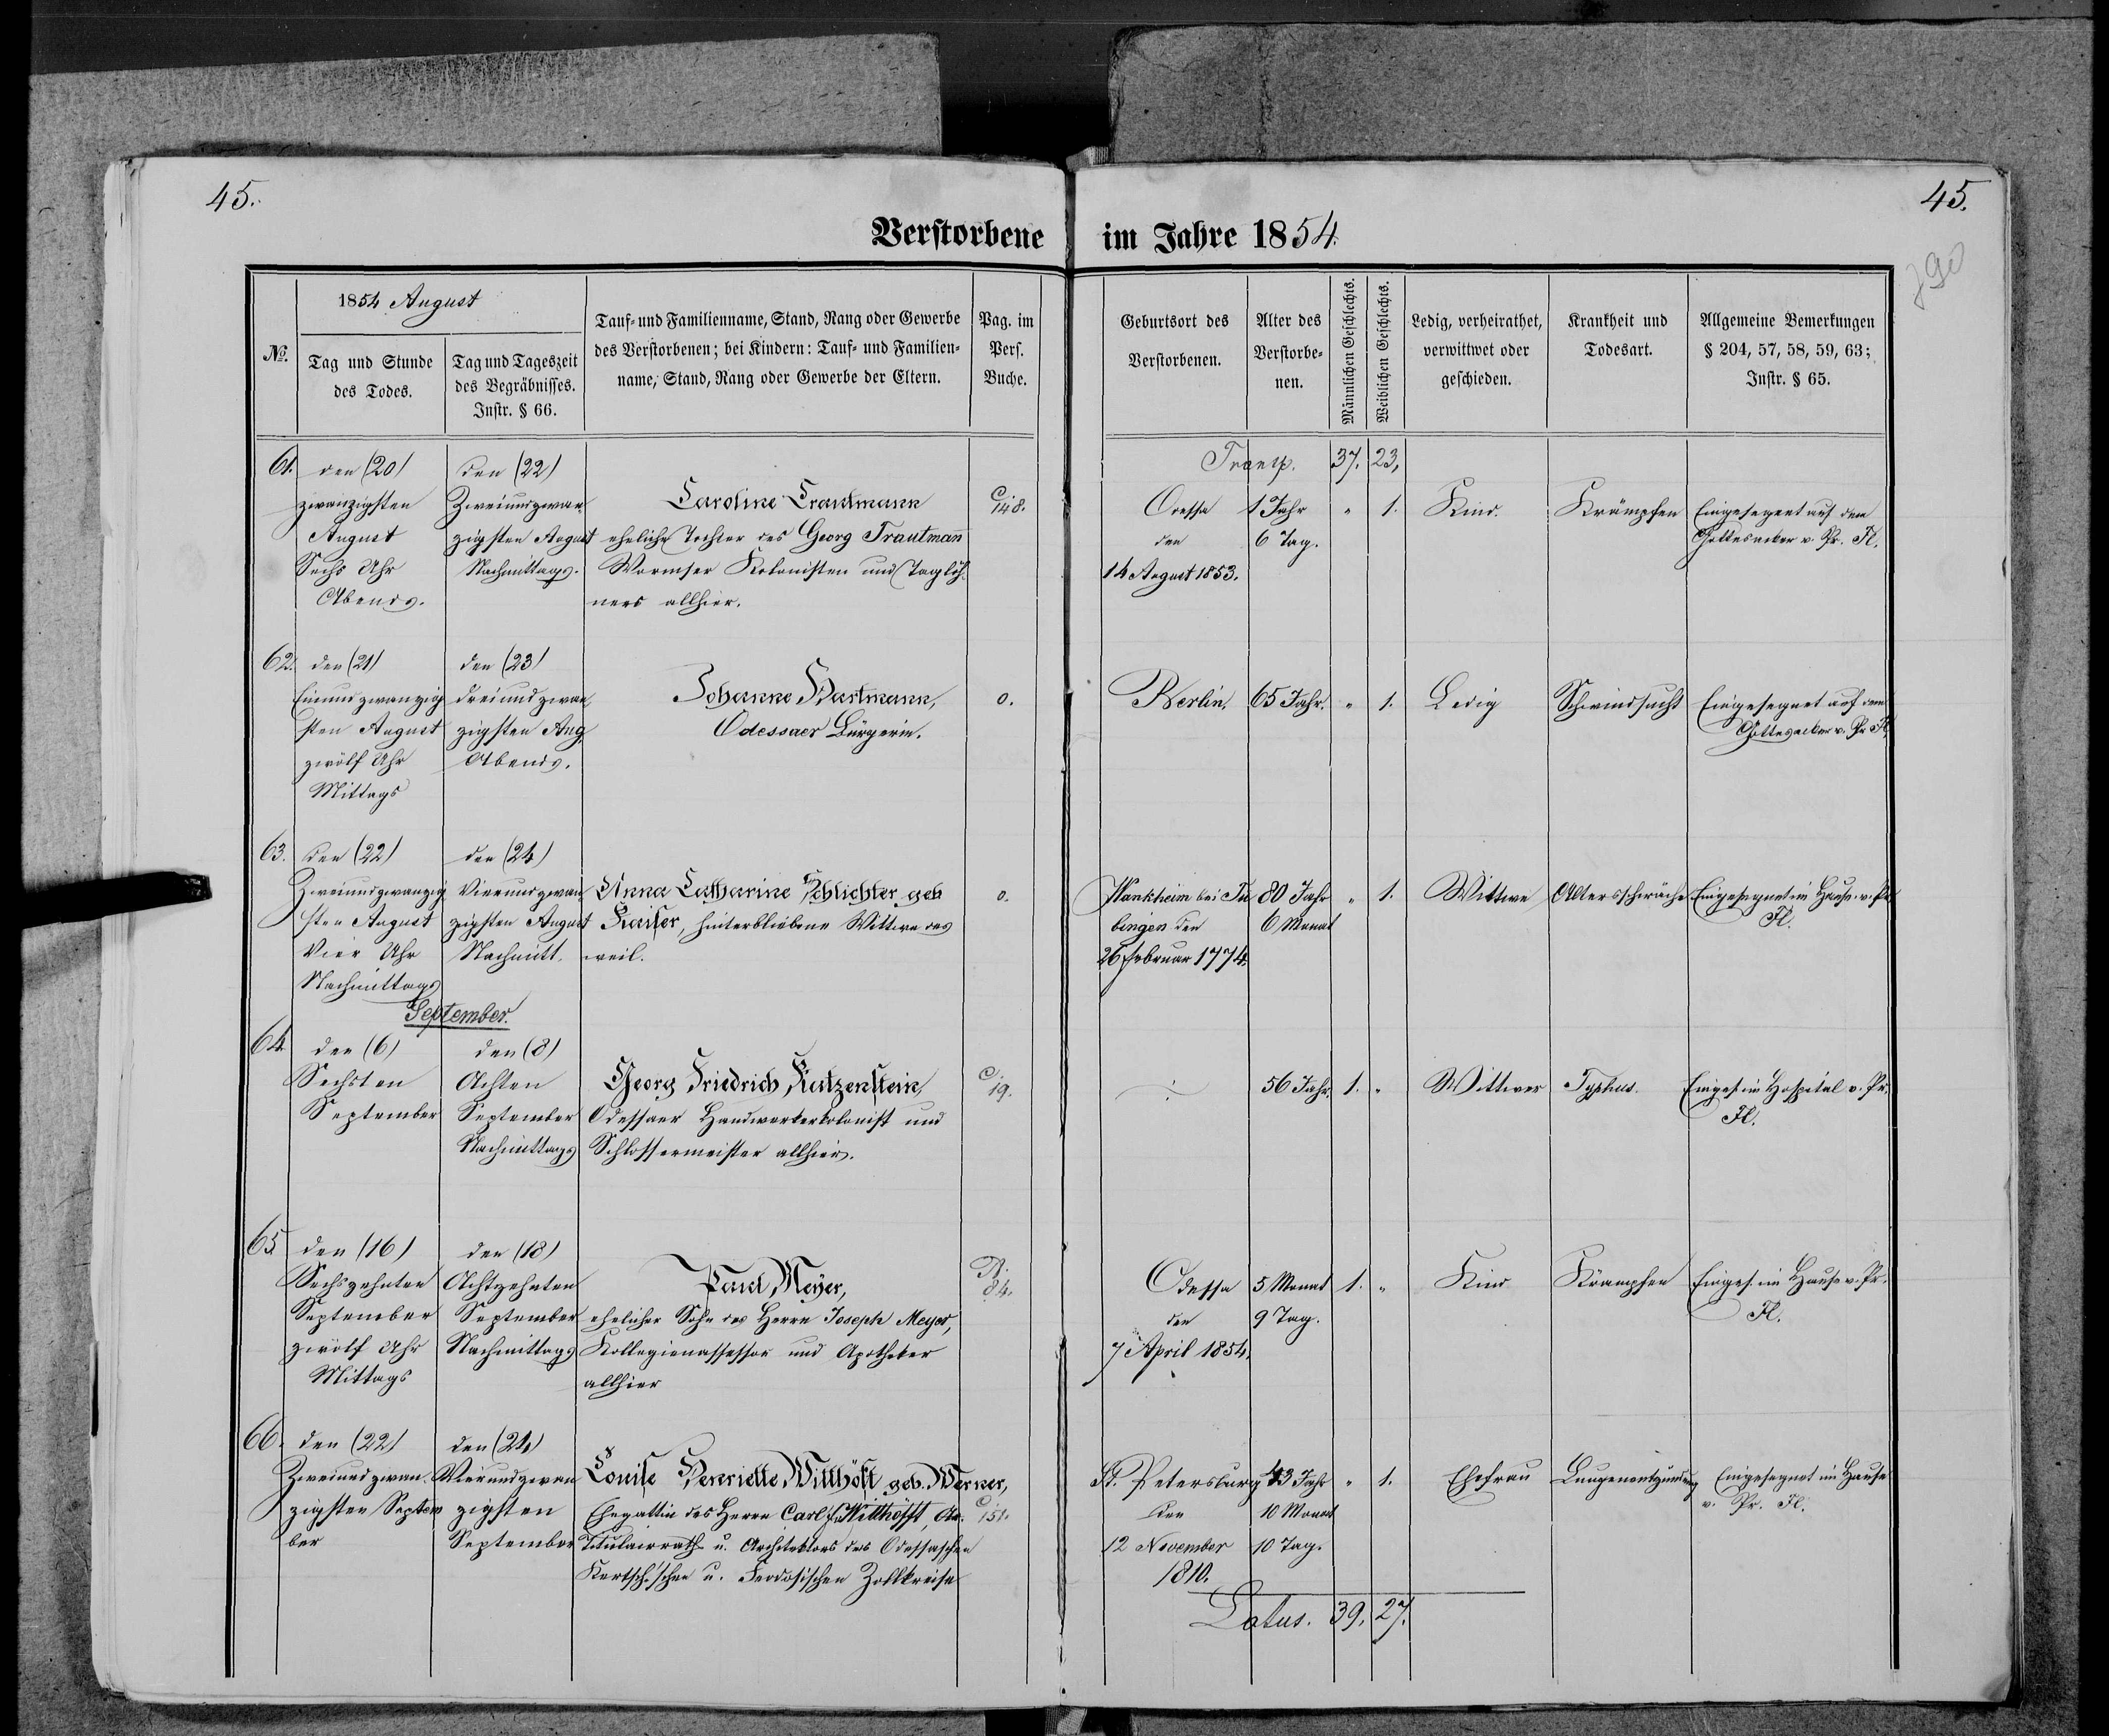 45.
45.
790
Verstorbene im Jahre 1854.
No.
1854 August
Tag und Stunde
des Todes.
Tag und Tageszeit
des Begräbnisses.
Instr. § 66.
Tauf- und Familienname, Stand, Rang oder Gewerbe
des Verstorbenen; bei Kindern: Tauf- und Familien-
name, Stand, Rang oder Gewerbe der Eltern.
Pag. im
Pers.
Buche.
Geburtsort des
Verstorbenen.
Alter des
Verstorbe-
nen.
Männlichen Geschlechts.
Weiblichen Geschlechts.
Ledig, verheirathet,
verwittwet oder
geschieden.
Krankheit und
Todesart.
Allgemeine Bemerkungen
§ 204, 57, 58, 59, 63;
Instr. § 65.
Transp. 37. 23.
61.
den (20)
zwanzigsten
August
Sechs Uhr
Abends.
den (22)
Zweiundzwan
zigsten August
Nachmittags.
Caroline Trautmann
eheliche Tochter des Georg Trautmann
Wormser Kolonisten und Taglöh-
ners allhier.
C.
148.
Odessa
den
14 August 1853.
1 Jahr
6 Tag.
" 1.
Kind.
Krämpfen
Eingesegnet auf dem
Gottesacker v. Pr. Fl.
62.
den (21)
Einundzwanzig
sten August
zwölf Uhr
Mittags
den (23)
dreiundzwan
zigsten Aug.
Abends.
Johanne Hartmann,
Odessaer Bürgerin.
0.
Berlin.
65 Jahr.
" 1.
Ledig
Schwindsucht
Eingesegnet auf dem
Gottesacker v. Pr. Fl.
63.
den (22)
Zweiundzwanzig
sten August
Vier Uhr
Nachmittags
den (24)
Vierundzwan
zigsten August
Nachmitt.
Anna Catharine Schlichter geb
Kaiser, hinterbliebene Wittwe des
weil.
0.
Wankheim bei Tü
bingen den
26 Februar 1774.
80 Jahr
6 Monat
" 1.
Wittwe
Altersschwäche
Eingesegnet im Hause v. Pr
Fl.
September.
64.
den (6)
Sechsten
September
den (8)
Achten
September
Nachmittags
Georg Friedrich Kutzenstein,
Odessaer Handwerkerkolonist und
Schlossermeister allhier.
C.
19.
56 Jahr.
1. "
Wittwer
Typhus.
Einges. im Hospital v. Pr.
Fl.
65.
den (16)
Sechszehnten
September
zwölf Uhr
Mittags
den (18)
Achtzehnten
September
Nachmittags
Paul Meyer,
ehelicher Sohn des Herrn Joseph Meyer,
Kollegienassessor und Apotheker
allhier
B.
84.
Odessa
den
7 April 1854.
5 Monat
9 Tag.
1. "
Kind
Krämpfen
Einges. im Hause v. Pr.
Fl.
66.
den (22)
Zweiundzwan
zigsten Septem
ber
den (24)
Vierundzwan
zigsten
September
Louise Henriette Witthöft geb. Werner,
Ehegattin des Herrn Carl Witthöfft,
Titulairrath u. Architektors des Odessaschen
Kertsch'schen u. Feodosischen Zollkreise
C.
151.
St. Petersburg
den
12 November
1810.
43 Jahr
10 Monat
10 Tag.
" 1.
Ehefrau
Lungenentzündung
Eingesegnet im Hause
v. Pr. Fl.
Latus. 39. 27.